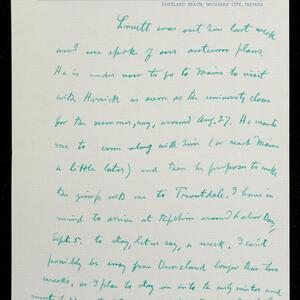 DUNELAND BEACH, MICHIGAN CITY, INDIANA
Lovett was out here last week
and we spoke of our autumn plans.
He is under vow to go to Maine to visit
with Herrick as soon as the university closes
for the summer, say, around Aug. 27. He wants
me to come along with him (or reach Maine
a little later) and then he proposes to make
the jump with me to Troutdale. I have in
mind to arrive at around Labor Day,
Sept. 5. to stay, let us say, a week. I can't
possibly be away from Duneland longer than two
weeks, as I plan to stay on into the early winter and